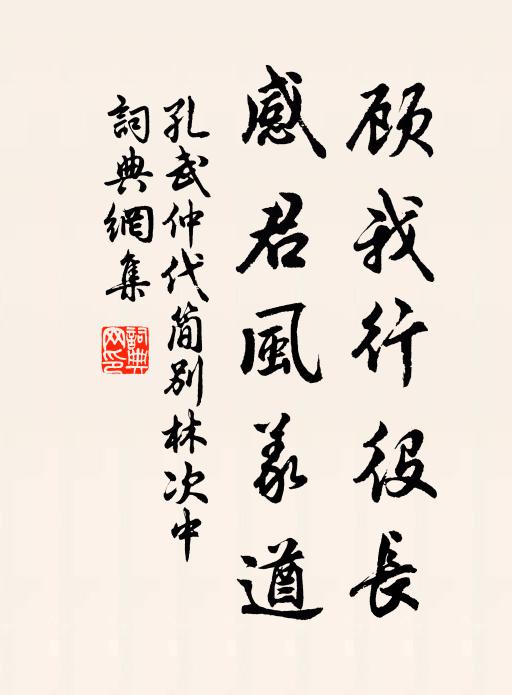 顾我行役長
感君風義遒
孔武仲代简别林次中
詞典網集
詞典網印